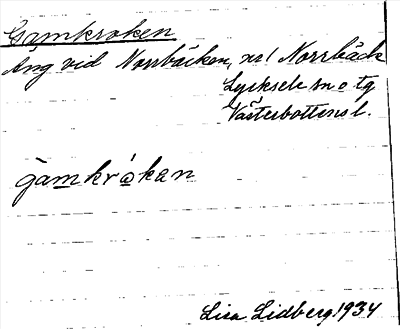 Gamkroken
Äng vid Norrbäcken, nr 1 Norrbäck
Lycksele sn o tg
Västerbottens l.
gamkrokan
Lisa Lidberg 1934